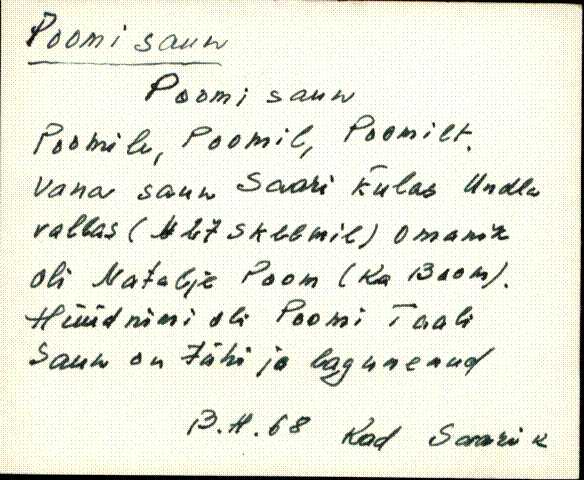 Poomi saun
Poomi saun
Poomile, Poomil, Poomilt.
Vana saun Saari külas Undla
vallas ( 27 skeemil) omanik
oli Natalje Poom (ka Boom).
Hüüdnimi oli Poomi Taali
Saun on tühi ja lagunenud
68 Kad Saarik